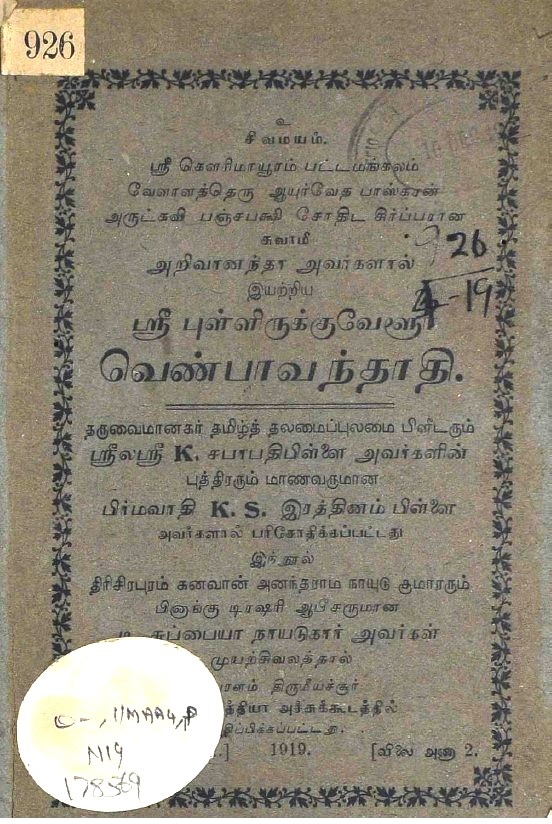 926
உ
சிவமயம்.
ஸ்ரீ கௌரிமாயூரம் பட்டமங்கலம்
வேளாளத்தெரு ஆயுர்வேத பாஸ்கரன்
அருட்கவி பஞ்சபக்ஷி சோதிட கீர்ப்பரான
சுவாமீ
அறிவானந்தா அவர்களால்
26
இயற்றிய
4-19
ஸ்ரீ புள்ளிருக்குவேளூர்
வெண்பாவந்தாதி.
தருவைமானகர் தமிழ்த் தலைமைப்புலமை பினீடரும்
ஸ்ரீலஸ்ரீ K. சபாபதிபிள்ளை அவர்களின்
புத்திரரும் மாணவருமான
பிர்மவாதி K. S. இரத்தினம் பிள்ளை
அவர்களால் பரிசோதிக்கப்பட்டது
இந்நூல்
திரிசிரபுரம் கனவான் அனந்தராம நாயுடு குமாரரும்
பினாங்கு டிரஷரி ஆபீசருமான
சுப்பையா நாயடுகார் அவர்கள்
முயற்சிவலத்தால்
திருமீயச்சூர்
அச்சுக்கூடத்தில்
பிப்பிக்கப்பட்டது.
.] 1919. [விலை அணா 2.
N19
178569